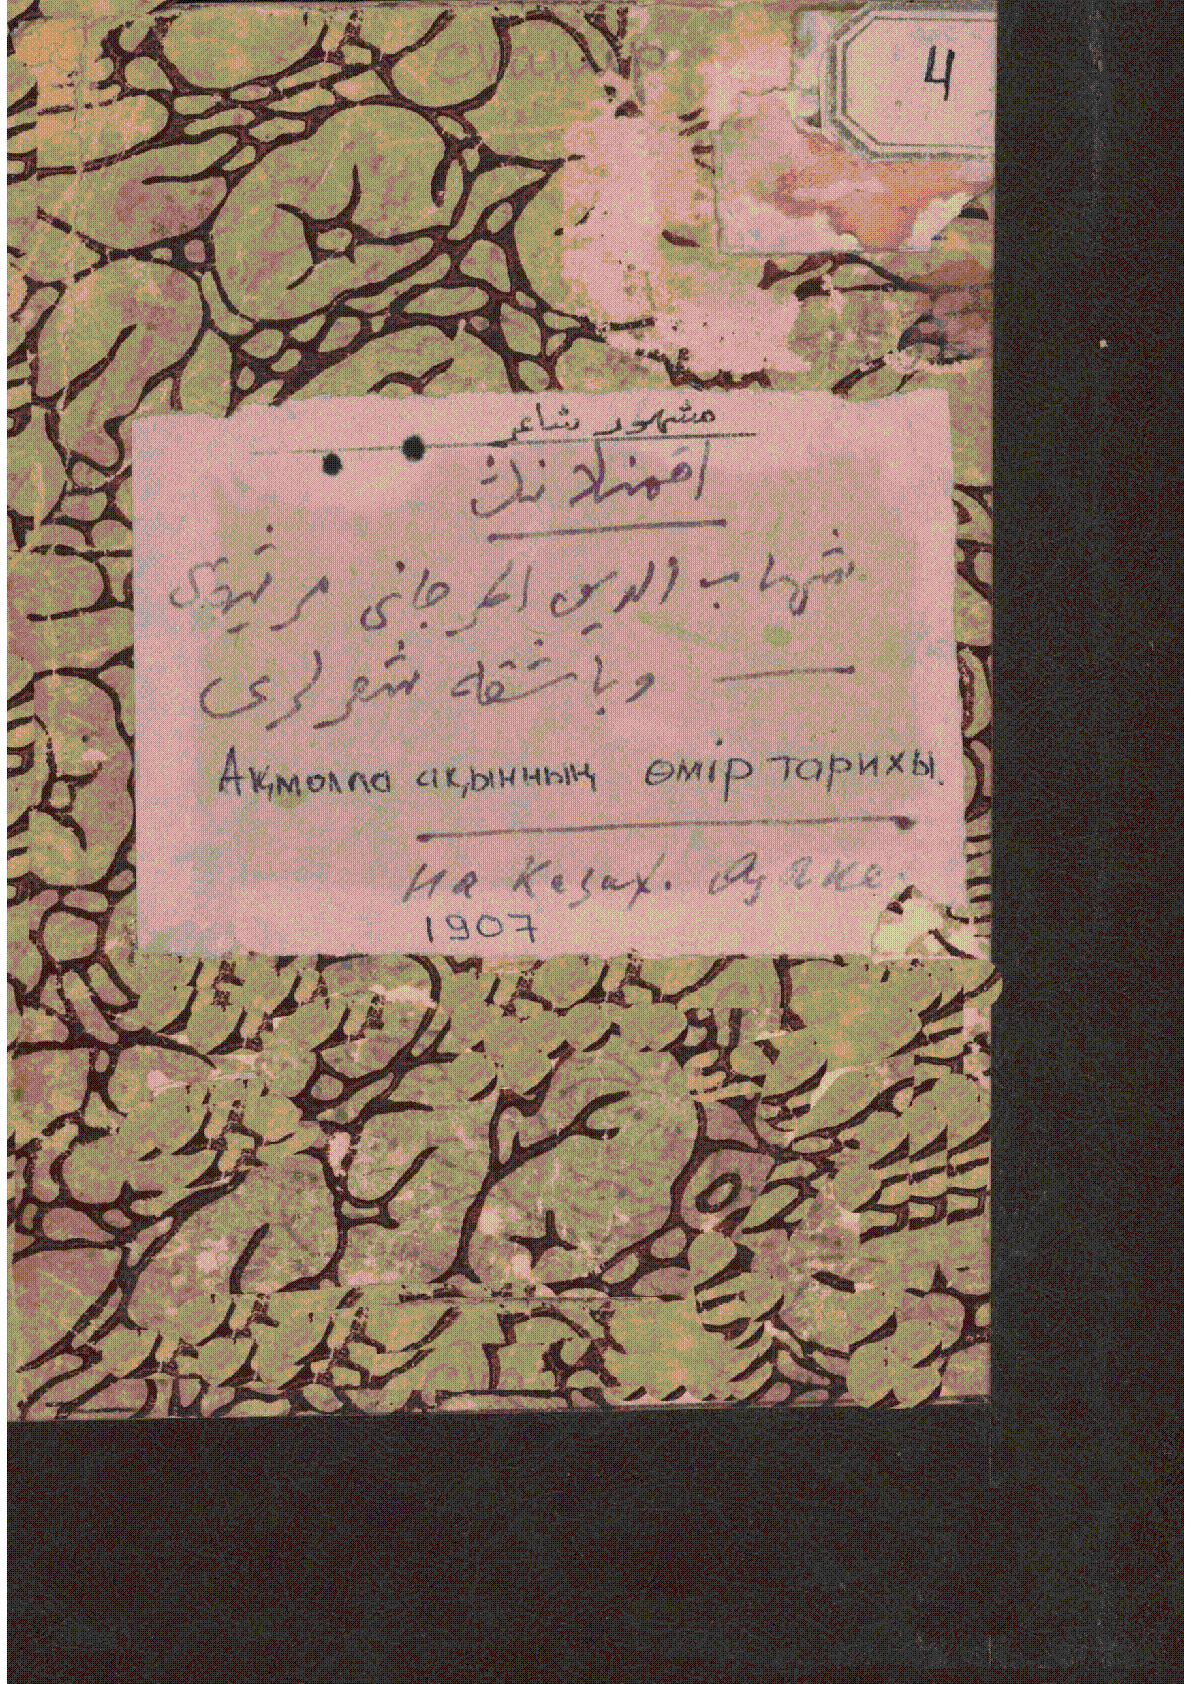 4
مشهور شاعر
اقمنلا ننڭ
شهاب الدين المرجانی مرثیەسی
وباشقه شعرلری
Ақмолла ақынның өмір тарихы.
на Казах.
1907